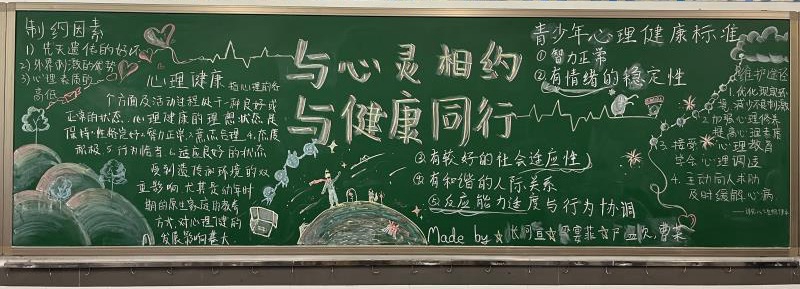 制约因素
1) 先天遗传的好坏
2) 外界刺激的优势
3) 心理素质的
高低
心理健康 指心理的各
个方面及活动过程处于一种良好或
正常的状态。心理健康的理想状态是
保持性格完好、智力正常、意志合理、态度
积极、行为恰当、适应良好的状态
受到遗传和环境的双
重影响 尤其是幼年时
期的原生家庭的教养
方式,对心理健康的
发展影响甚大
与心灵相约
与健康同行
青少年心理健康标准
①智力正常
②有情绪的稳定性
③有较好的社会适应性
④有和谐的人际关系
⑤反应能力适度与行为协调
Made by
维护途径
1.优化现实环
境,减少不良刺激
2.加强心理修养
提高心理素质
3.接受心理教育
学会心理调适
4.主动向人求助
及时缓解心病